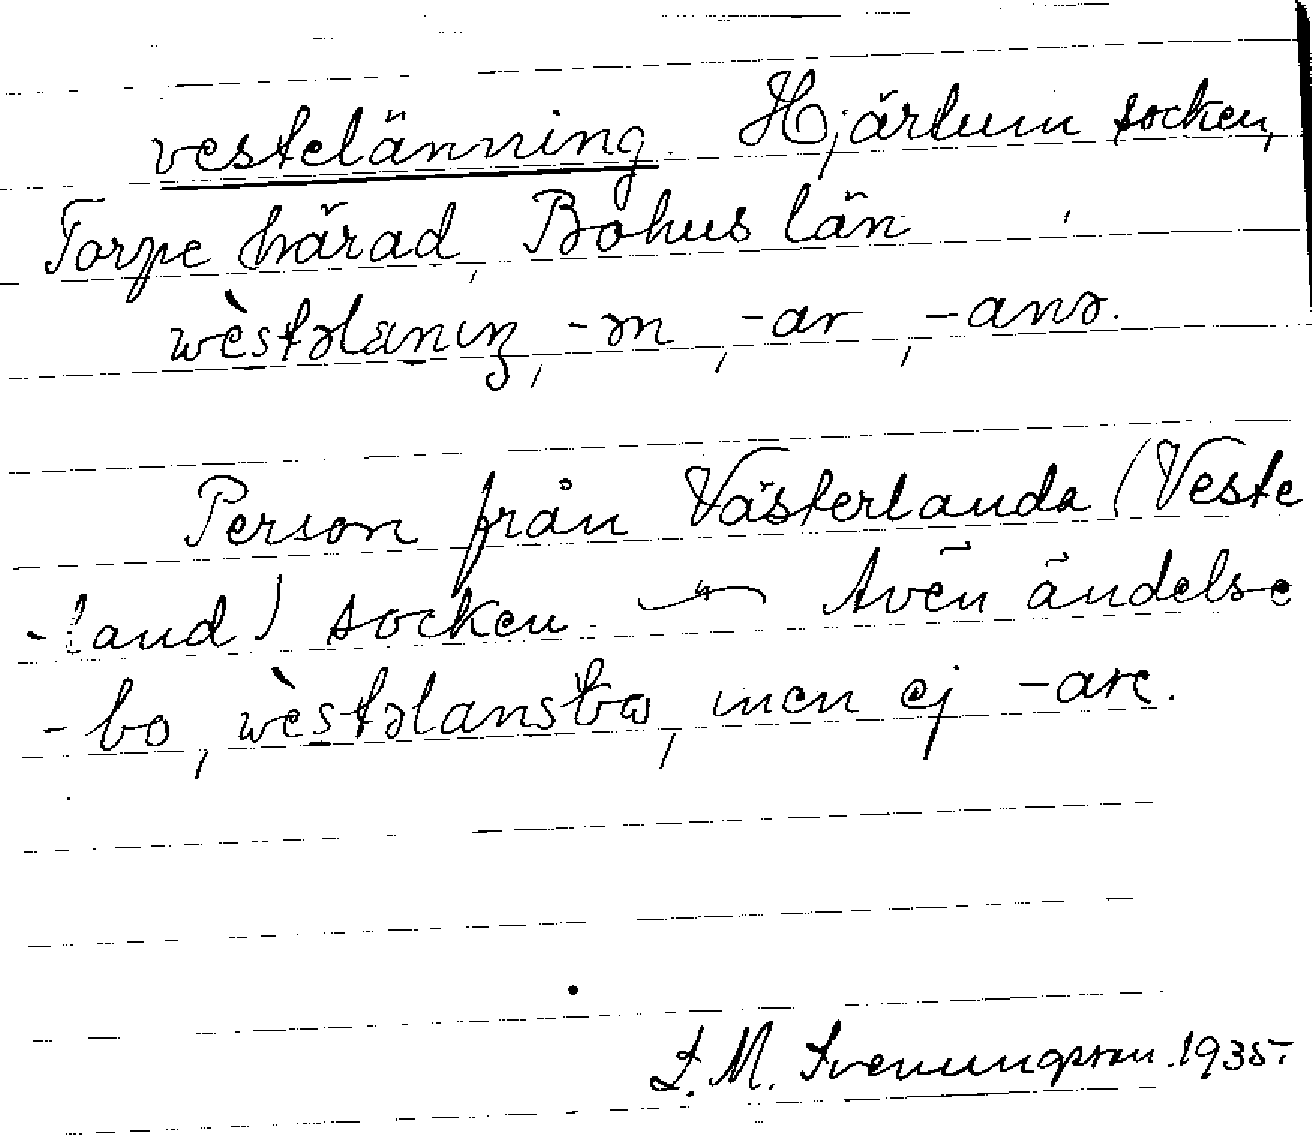 vestelänning Hjärtum socken,
Torpe härad, Bohus län
wèstəlanıŋ, -ən, -ar, -anə.
Person från Västerlanda (Veste
-land) socken. — " — Även ändelse
-bo, wèstəlansbω, men ej -are.
S. M. Svenungsson. 1935.